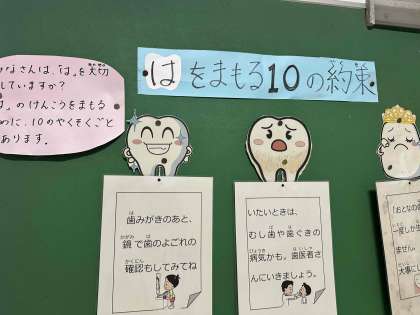 なさんは、「は」を大切
していますか?
」のけんこうをまもる
めに、10のやくそくごと
あります。
はをまもる10の約束
歯みがきのあと、
鏡で歯のよごれの
確認もしてみてね
いたいときは、
むし歯や歯ぐきの
病気かも。歯医者さ
んにいきましょう。
「おとなの
一度しか生
ません。
大事に